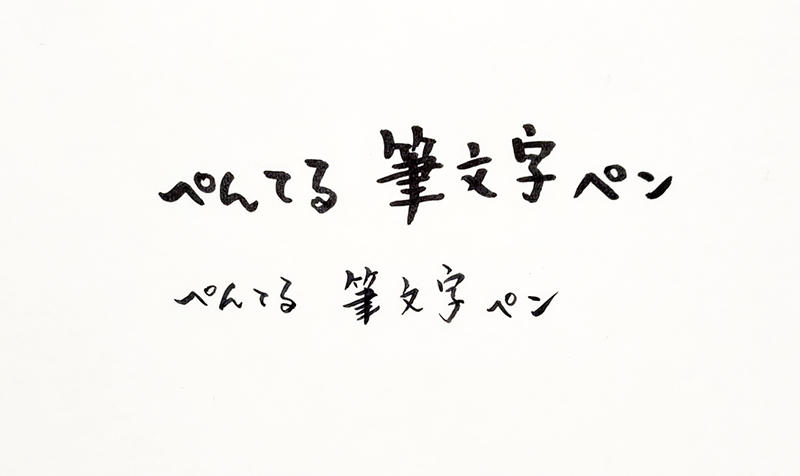 ぺんてる 筆文字ペン
ぺんてる 筆文字ペン